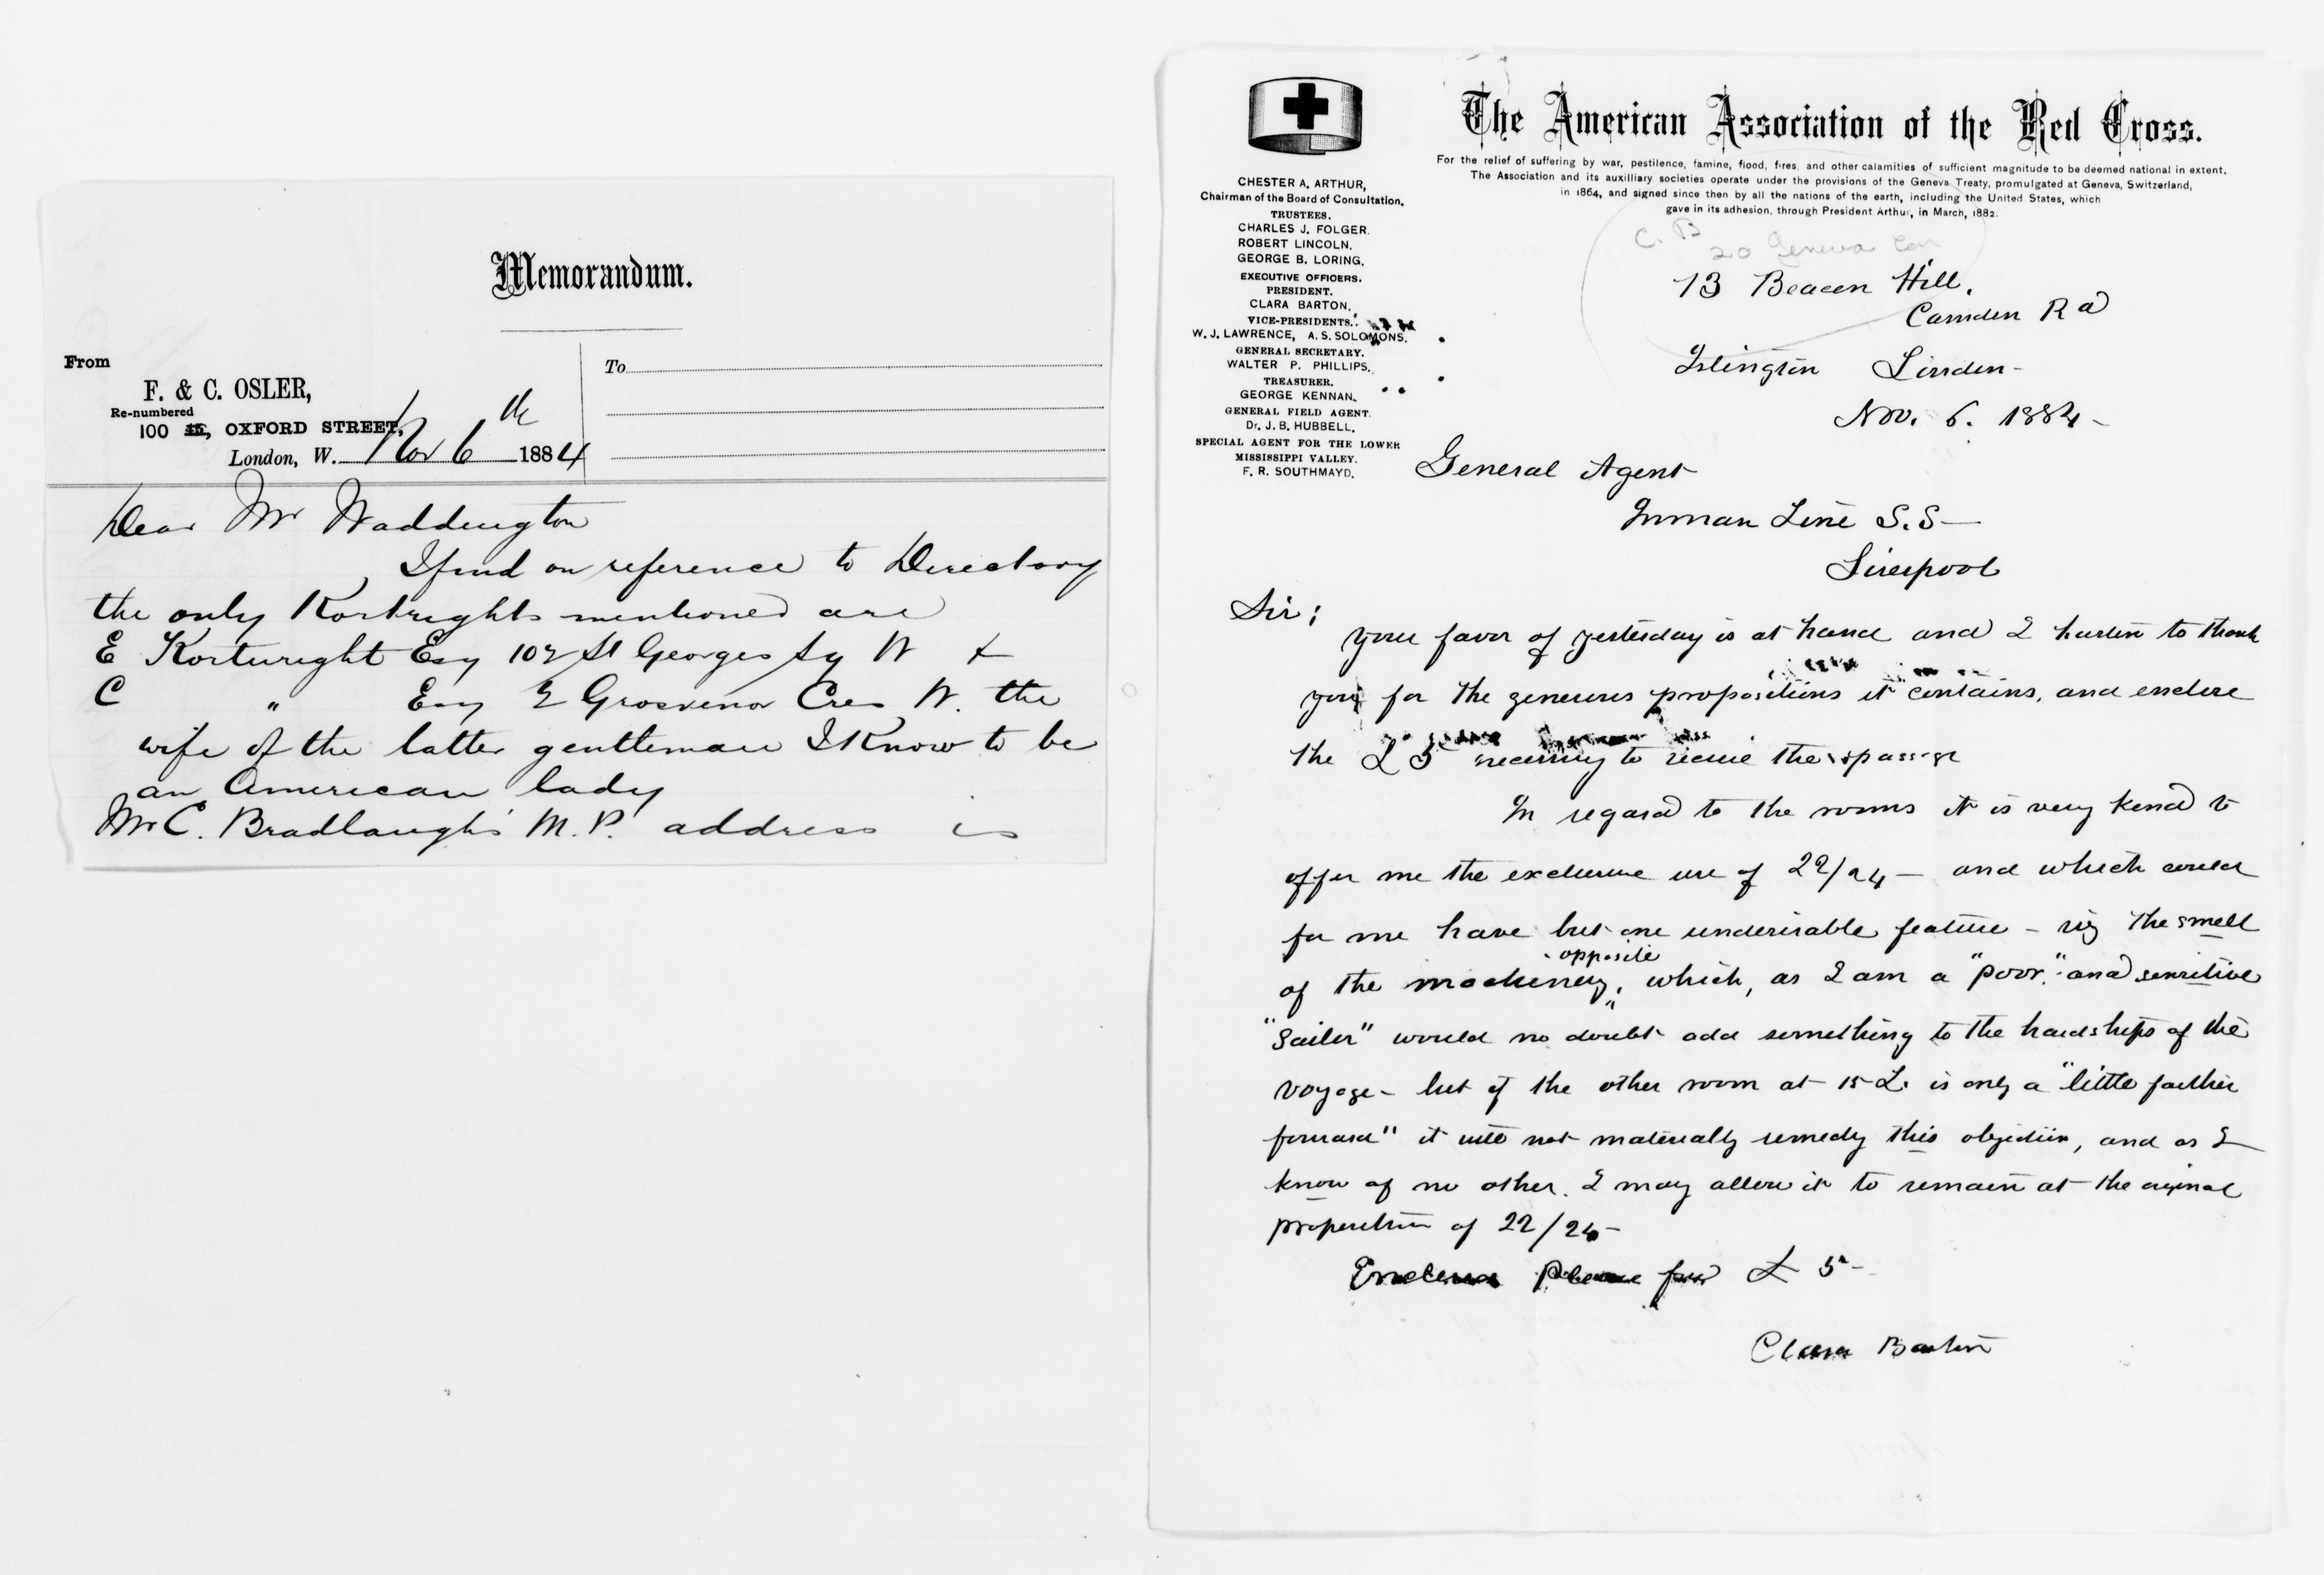 Memorandum.
From
F. & C. OSLER,
Re-numbered
100 45, OXFORD STREET,
London, W. Nov 6th 1884
To
Dear Mr Waddington
I find on reference to Directory
the only Kortrights mentioned are
E Kortwright Esq 102 St Georges Sq W &
C " Esq 2 Grosvenor Cres W. the
wife of the latter gentleman I Know to be
an American lady
Mr C. Bradlaugh's M.P. address is
The American Association of the Red Cross.
For the relief of suffering by war, pestilence, famine, flood, fires, and other calamities of sufficient magnitude to be deemed national in extent.
The Association and its auxilliary societies operate under the provisions of the Geneva Treaty, promulgated at Geneva, Switzerland,
in 1864, and signed since then by all the nations of the earth, including the United States, which
gave in its adhesion, through President Arthur, in March, 1882.
CHESTER A. ARTHUR,
Chairman of the Board of Consultation.
TRUSTEES.
CHARLES J. FOLGER.
ROBERT LINCOLN.
GEORGE B. LORING.
EXECUTIVE OFFICERS.
PRESIDENT.
CLARA BARTON.
VICE-PRESIDENTS.
W. J. LAWRENCE, A. S. SOLOMONS.
GENERAL SECRETARY.
WALTER P. PHILLIPS.
TREASURER.
GEORGE KENNAN.
GENERAL FIELD AGENT.
Dr. J. B. HUBBELL.
SPECIAL AGENT FOR THE LOWER
MISSISSIPPI VALLEY.
F. R. SOUTHMAYD.
C. B
20 Geneva Con
13 Beacon Hill,
Camden Rd
Islington London -
Nov. 6. 1884 -
General Agent
Inman Line S.S —
Liverpool
Sir;
your favor of yesterday is at hand and I hasten to thank
you for the generous propositions it contains, and enclose
the £5 necessary to secure the passage
In regard to the rooms it is very kind to
offer me the exclusive use of 22/24 — and which could
for me have but one undesirable feature - viz the smell
of the machinery, opposite which, as I am a "poor" and sensitive
"sailor" would no doubt add something to the hardships of the
voyage - but if the other room at 15 £. is only a "little farther
forward" it will not materially remedy this objection, and as I
know of no other. I may allow it to remain at the original
proposition of 22/24 -
Enclosed Please find £ 5 -
Clara Barton